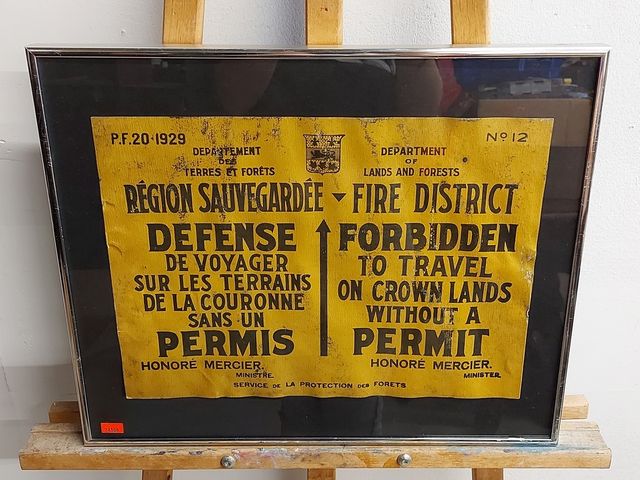 P.F. 20-1929
Nº 12
DEPARTEMENT
DES
TERRES ET FORÊTS
DEPARTMENT
OF
LANDS AND FORESTS
RÉGION SAUVEGARDÉE
FIRE DISTRICT
DEFENSE
DE VOYAGER
SUR LES TERRAINS
DE LA COURONNE
SANS UN
PERMIS
HONORÉ MERCIER.
MINISTRE.
FORBIDDEN
TO TRAVEL
ON CROWN LANDS
WITHOUT A
PERMIT
HONORÉ MERCIER.
MINISTER.
SERVICE DE LA PROTECTION DES FORETS